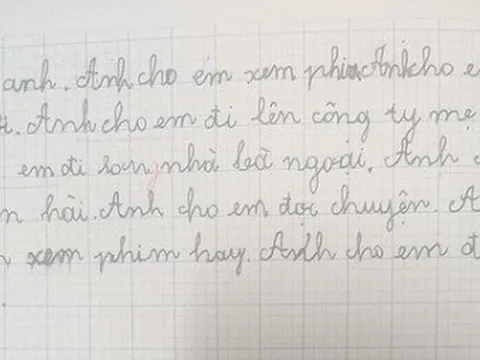 anh. Anh cho em xem phim Anh cho e
. Anh cho em đi lên công ty mẹ
em đi sang nhà bà ngoại. Anh c
n hài. Anh cho em đọc chuyện. A
xem phim hay. Anh cho em đ